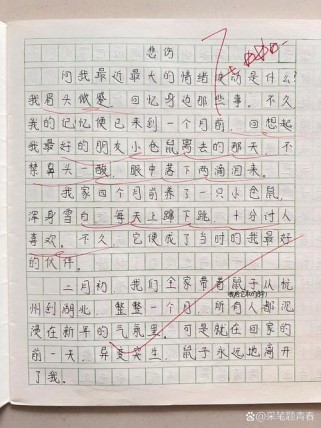 悲伤
问我最近最大的情绪波动是什么?
我眉头微蹙,回忆身边那些事。不久
我的记忆便已来到一个月前,回想起
我最好的朋友小仓鼠离去的那天,不
禁鼻头一酸,眼中落下两滴泪来。
我家四个月前养了一只小仓鼠,
浑身雪白,每天上蹿下跳,十分讨人
喜欢。不久,它便成了当时的我最好
的伙伴。
二月初,我们全家带着鼠子从杭
州到湖北,整整一个月,所有人都沉
浸在新年的气氛里。可是就在回家的
前一天,异变突生,鼠子永远地离开
了我。
@采笔题青春